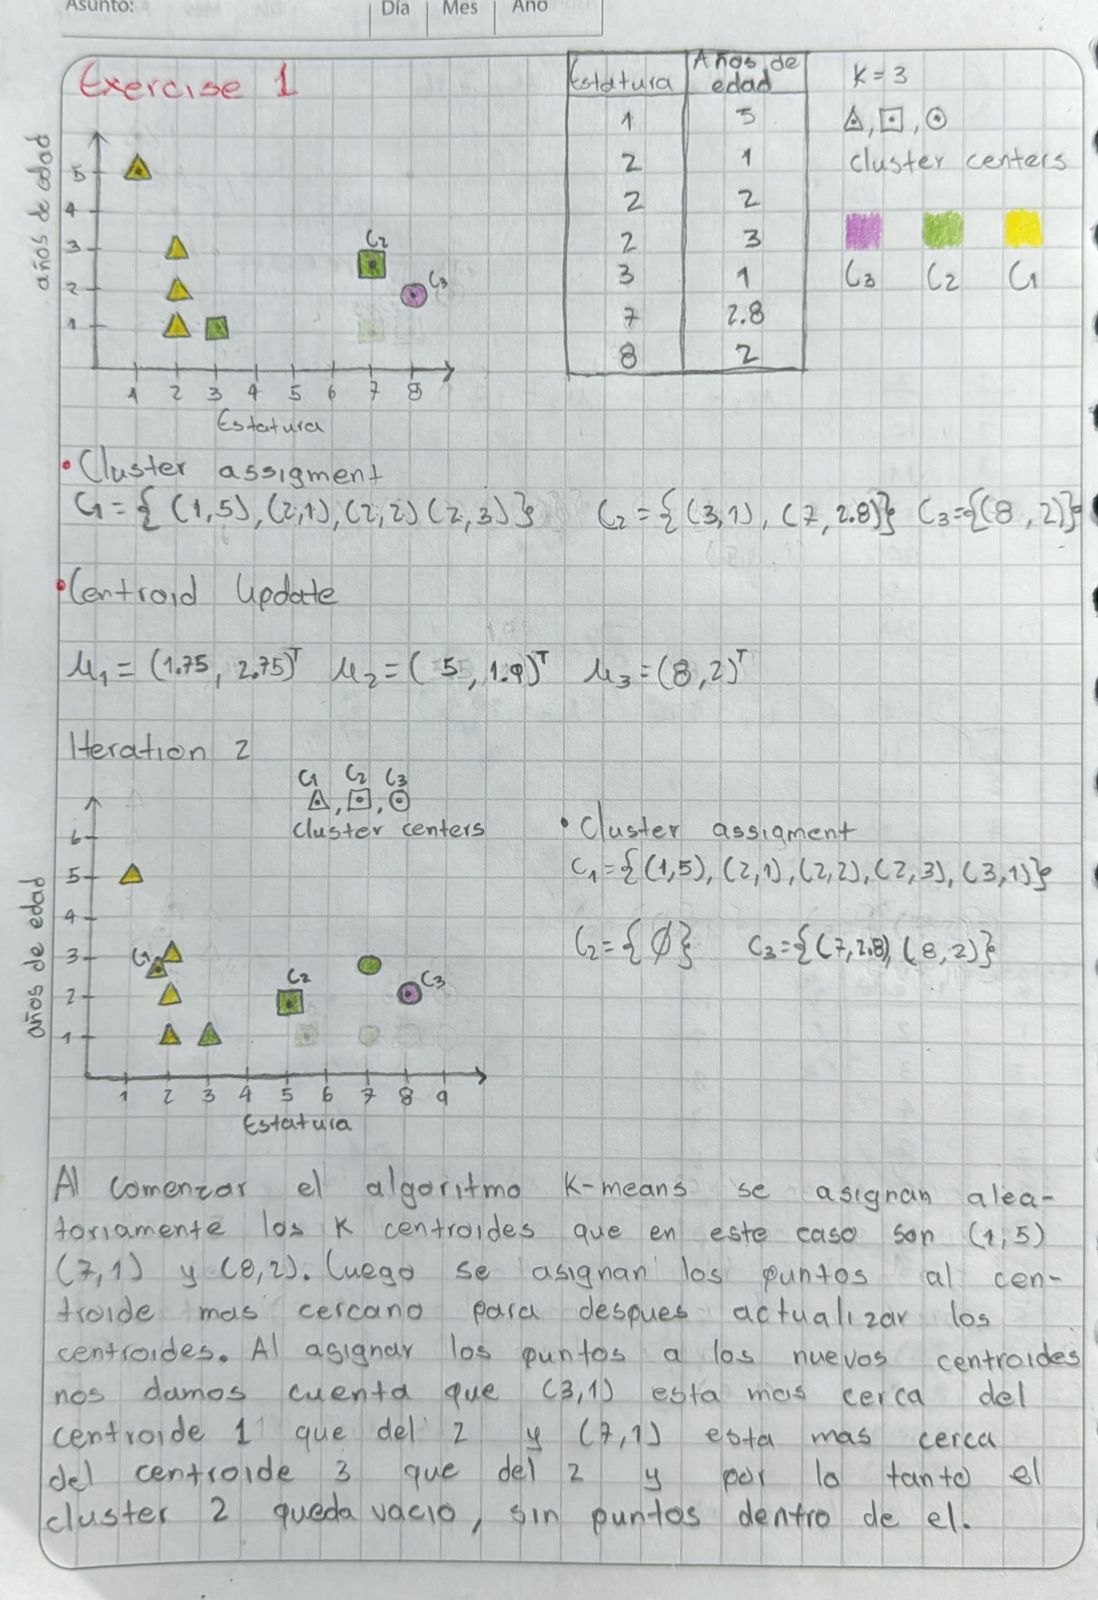 Asunto:
Día Mes Año
Exercise 1
Estatura Años de edad
1 5
2 1
2 2
2 3
3 1
7 2.8
8 2
K = 3
, ,
cluster centers
C3 C2 C1
años de edad
5
4
3
2
1
C2
C3
1 2 3 4 5 6 7 8
Estatura
• Cluster assigment
C1 = { (1,5), (2,1), (2,2) (2,3)} C2 = {(3,1), (7, 2.8)} C3={(8, 2)}
• Centroid Update
μ1 = (1.75, 2.75)ᵀ μ2 = ( 5, 1.9)ᵀ μ3 = (8,2)ᵀ
Iteration 2
C1 C2 C3
, ,
cluster centers
años de edad
6
5
4
3
2
1
C1
C2
C3
1 2 3 4 5 6 7 8 9
Estatura
• Cluster assigment
C1={(1,5), (2,1), (2,2), (2,3), (3,1)}
C2={∅} C3={(7,2.8), (8,2)}
Al comenzar el algoritmo K-means se asignan alea-
toriamente los K centroides que en este caso son (1,5)
(7,1) y (8,2). Luego se asignan los puntos al cen-
troide mas cercano para despues actualizar los
centroides. Al asignar los puntos a los nuevos centroides
nos damos cuenta que (3,1) esta mas cerca del
centroide 1 que del 2 y (7,1) esta mas cerca
del centroide 3 que del 2 y por lo tanto el
cluster 2 queda vacio, sin puntos dentro de el.